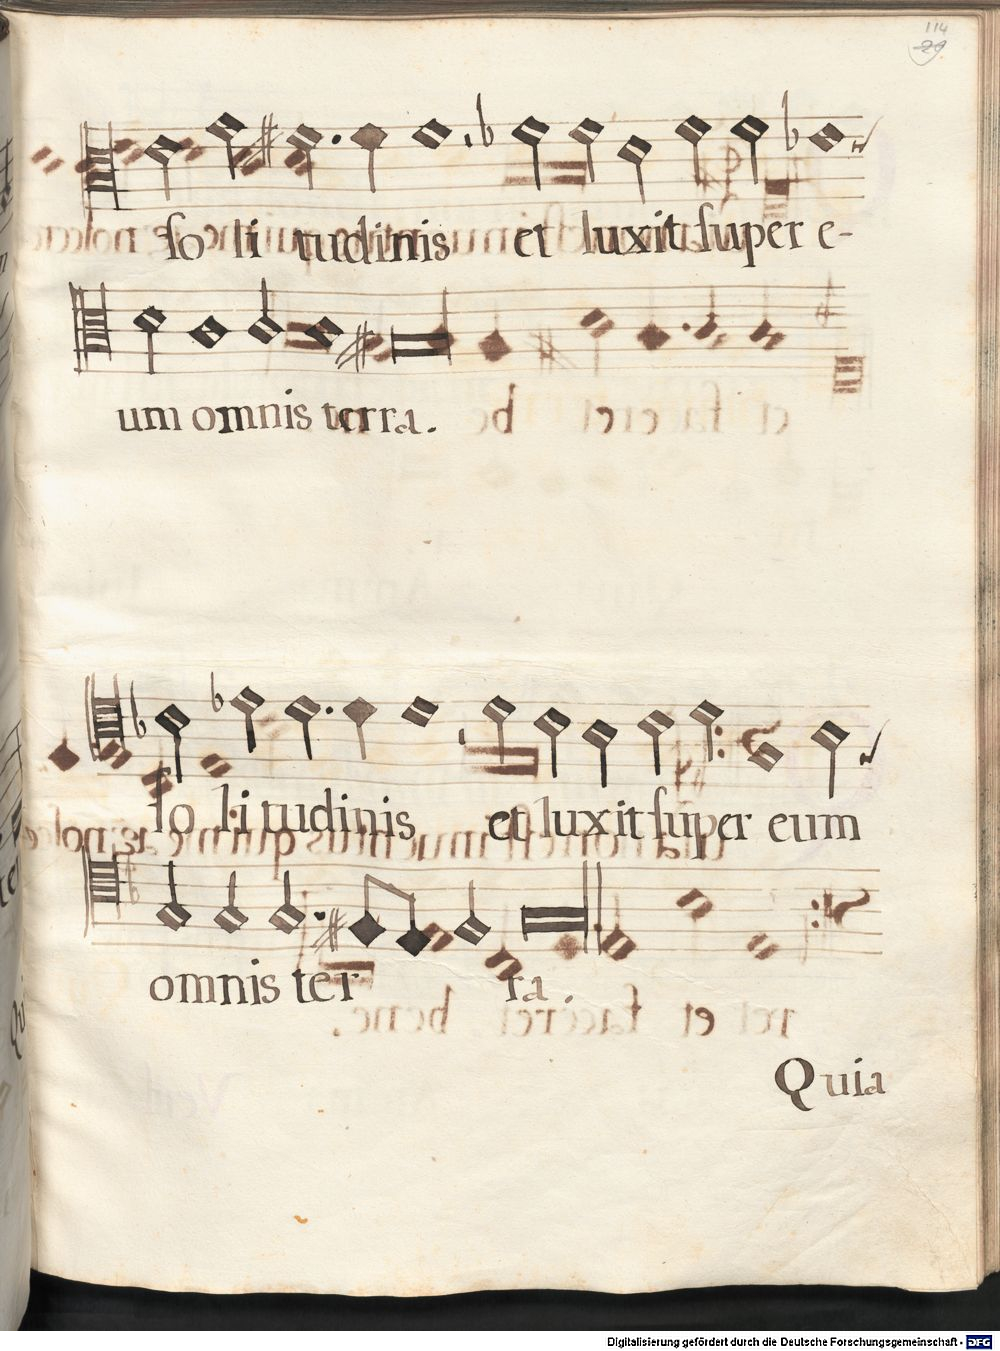 114
29
so li tudinis et luxit super e-
um omnis terra.
so li tudinis et luxit super eum
omnis ter ra.
Quia
Digitalisierung gefördert durch die Deutsche Forschungsgemeinschaft - DFG